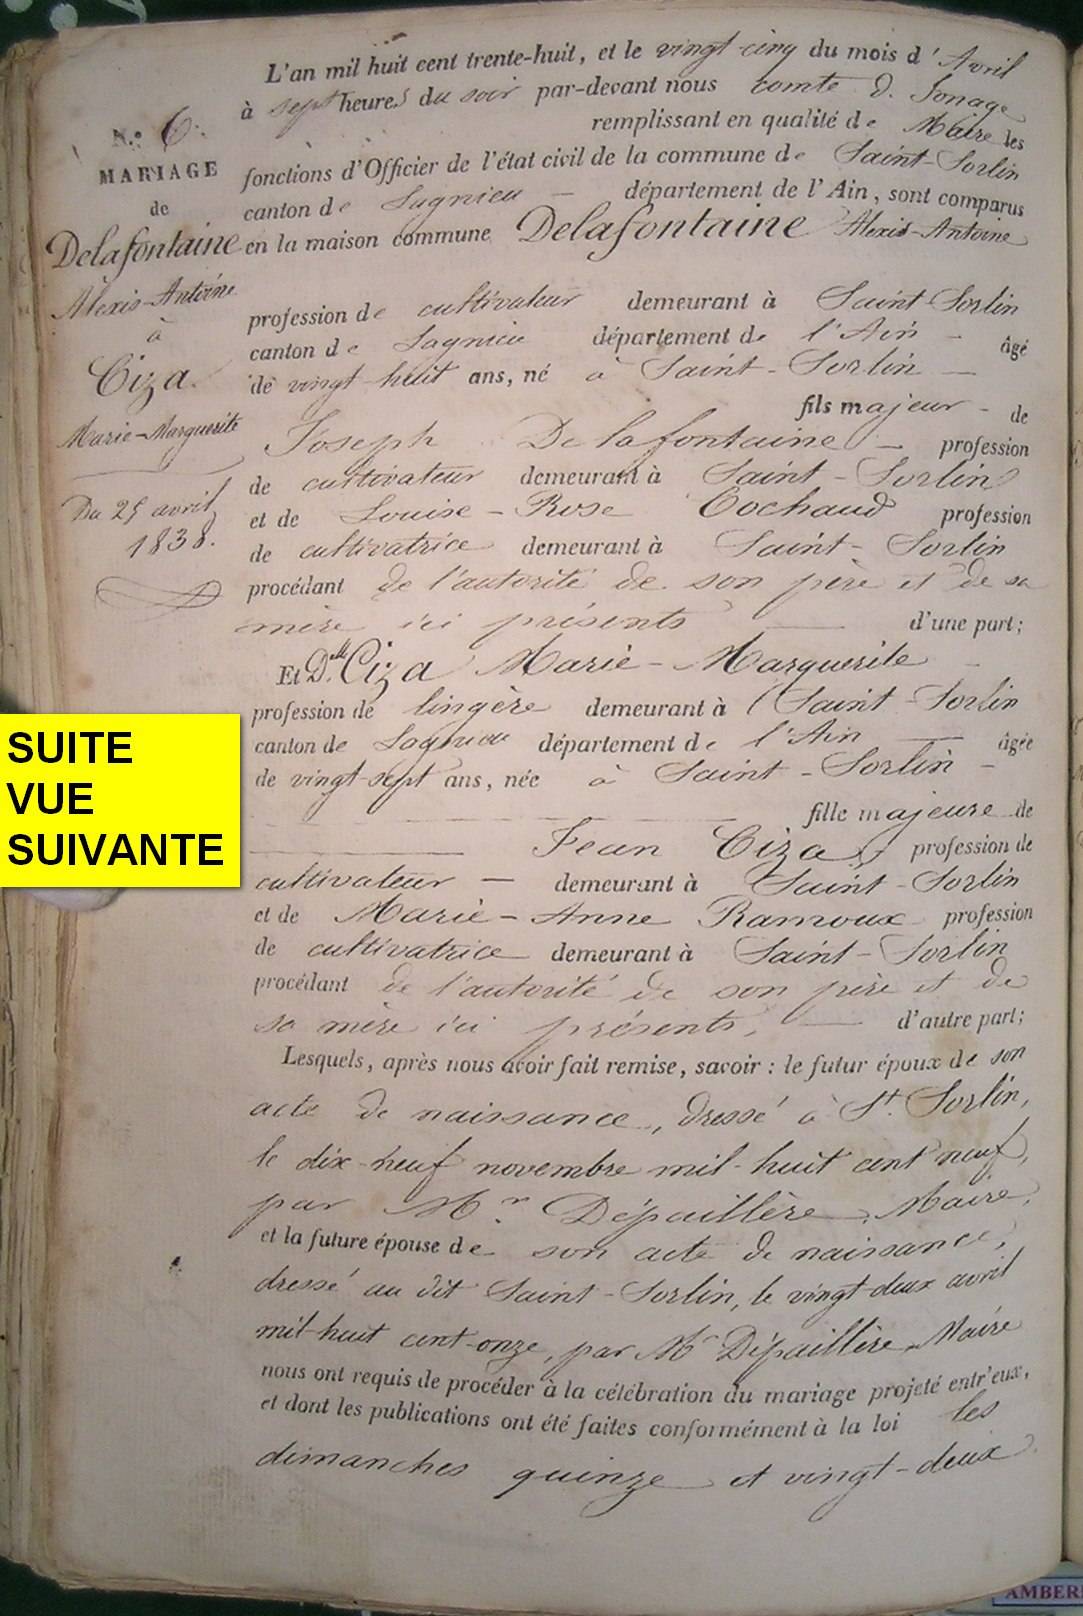 L'an mil huit cent trente-huit, et le vingt-cinq du mois d'Avril
à sept heures du soir par-devant nous comte d.
remplissant en qualité de Maire les
N.º 6.
MARIAGE
de
Delafontaine
Alexis-Antoine
à
Ciza.
Marie-Marguerite
Du 25 avril
1838.
fonctions d'Officier de l'état civil de la commune de Saint-Sorlin
canton de Lagnieu — département de l'Ain, sont comparus
en la maison commune Delafontaine Alexis-Antoine
profession de cultivateur demeurant à Saint-Sorlin
canton de Lagnieu département de l'Ain - âgé
de vingt-huit ans, né à Saint-Sorlin —
fils majeur - de
Joseph Delafontaine — profession
de cultivateur demeurant à Saint-Sorlin
et de Louise-Rose Cochaud profession
de cultivatrice demeurant à Saint-Sorlin
procédant de l'autorité de son père et de sa
mère ici présents — d'une part;
Et D.elle Ciza Marie-Marguerite -
profession de lingère demeurant à Saint-Sorlin
canton de Lagnieu département de l'Ain — âgée
de vingt-sept ans, née à Saint-Sorlin -
fille majeure de
Jean Ciza, profession de
cultivateur — demeurant à Saint-Sorlin
et de Marie-Anne Ramoux profession
de cultivatrice demeurant à Saint-Sorlin
procédant de l'autorité de son père et de
sa mère ici présents, — d'autre part;
Lesquels, après nous avoir fait remise, savoir : le futur époux de son
acte de naissance, dressé à St. Sorlin,
le dix-neuf novembre mil-huit cent neuf,
par Mr. Dépaillère, Maire,
et la future épouse de son acte de naissance,
dressé au dit Saint-Sorlin, le vingt-deux avril
mil-huit cent-onze, par Mr Dépaillère, Maire
nous ont requis de procéder à la célébration du mariage projeté entr'eux,
et dont les publications ont été faites conformément à la loi les
dimanches quinze et vingt-deux
SUITE
VUE
SUIVANTE